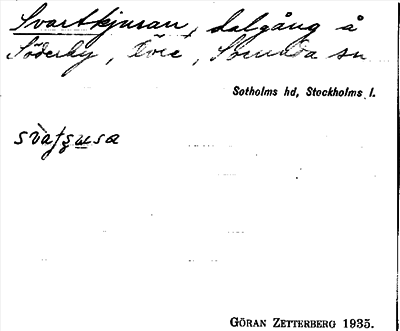 Svartkjusan, dalgång å
Söderby, Sorunda sn
Sotholms hd, Stockholms l.
GÖRAN ZETTERBERG 1935.